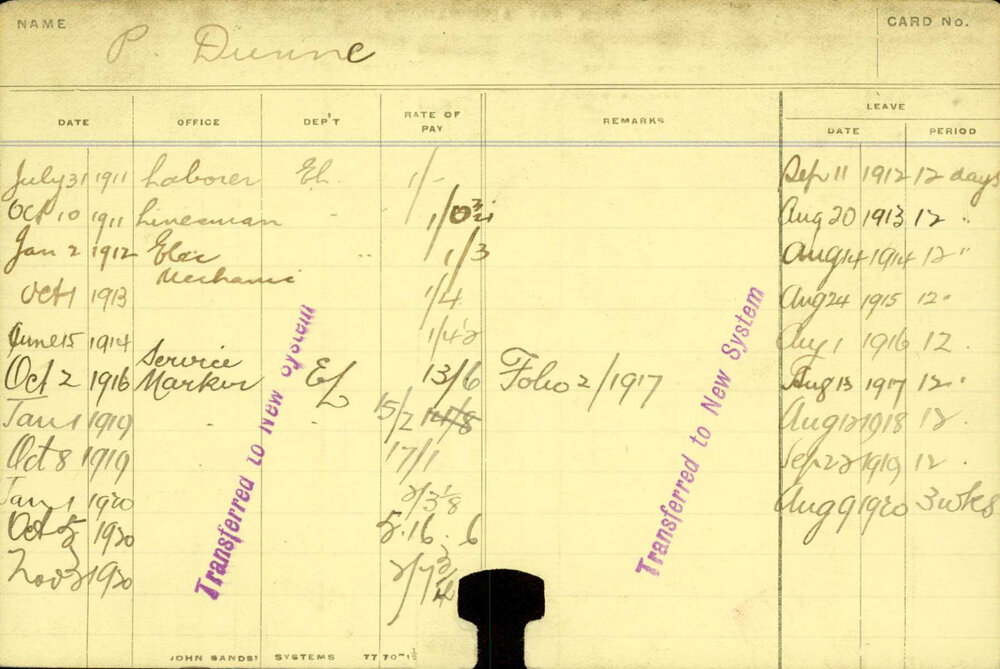 NAME P. Dunne CARD No.
DATE OFFICE DEP'T RATE OF PAY REMARKS LEAVE DATE PERIOD
July 31 1911 Laborer El. 1/- Sep 11 1912 12 days
Oct 10 1911 Linesman " 1/0 3/4 Aug 20 1913 12 "
Jan 2 1912 Elec Mechanic " 1/3 Aug 14 1914 12 "
Oct 1 1913 1/4 Aug 24 1915 12 "
June 15 1914 1/4½ Aug 1 1916 12 .
Oct 2 1916 Service Marker EL 13/6 Folio 2/1917 Aug 13 1917 12 "
Jan 1 1919 15/2 Aug 12 1918 12 .
Oct 8 1919 17/1 Sep 22 1919 12 .
Jan 1 1920 2/3⅛ Aug 9 1920 3 wks
Oct 5 1920 5.16.6
Nov 1920 2/7¾
Transferred to New System
Transferred to New System
JOHN SANDS' SYSTEMS